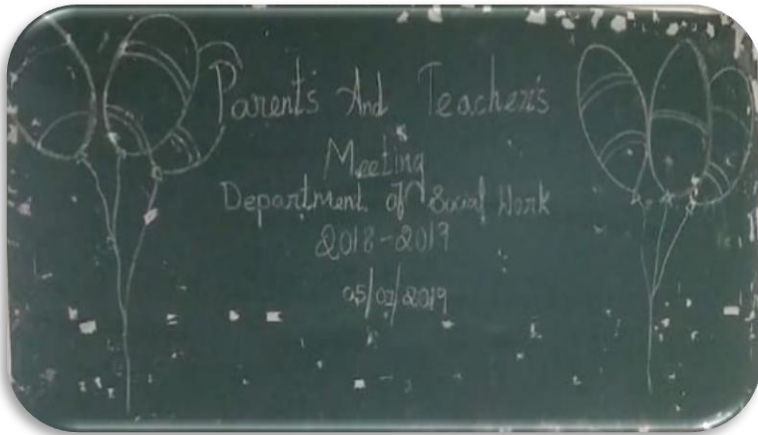 Parent's And Teacher's
Meeting
Department of Social Work
2018-2019
05/02/2019